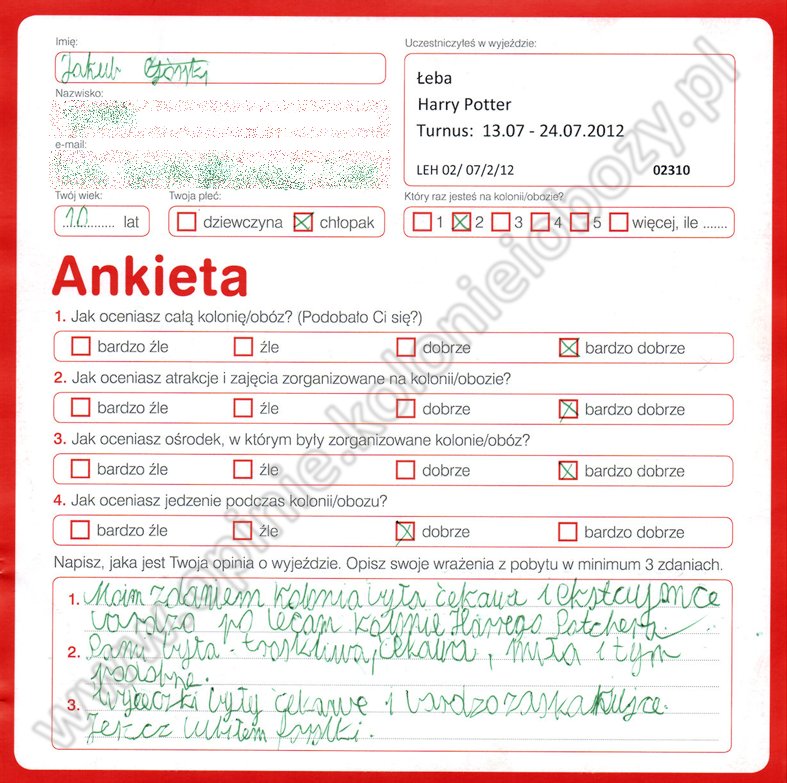 Imię:
Jakub
Nazwisko:
e-mail:
Twój wiek:
10 lat
Twoja płeć:
dziewczyna chłopak
Uczestniczyłeś w wyjeździe:
Łeba
Harry Potter
Turnus: 13.07 - 24.07.2012
LEH 02/ 07/2/12 02310
Który raz jesteś na kolonii/obozie?
1 2 3 4 5 więcej, ile .......
Ankieta
1. Jak oceniasz całą kolonię/obóz? (Podobało Ci się?)
bardzo źle źle dobrze bardzo dobrze
2. Jak oceniasz atrakcje i zajęcia zorganizowane na kolonii/obozie?
bardzo źle źle dobrze bardzo dobrze
3. Jak oceniasz ośrodek, w którym były zorganizowane kolonie/obóz?
bardzo źle źle dobrze bardzo dobrze
4. Jak oceniasz jedzenie podczas kolonii/obozu?
bardzo źle źle dobrze bardzo dobrze
Napisz, jaka jest Twoja opinia o wyjeździe. Opisz swoje wrażenia z pobytu w minimum 3 zdaniach.
1. Moim zdaniem kolonia była ćekawa i
bardzo po lecam kolonie Harrego
2. Pani była troskliwa, ćekawa, miła i tym
podobne.
3. Wyćeczki były ćekawe i bardzo zaskakujące.
Jeszcz lubiłem
www.opinie.kolonieiobozy.pl